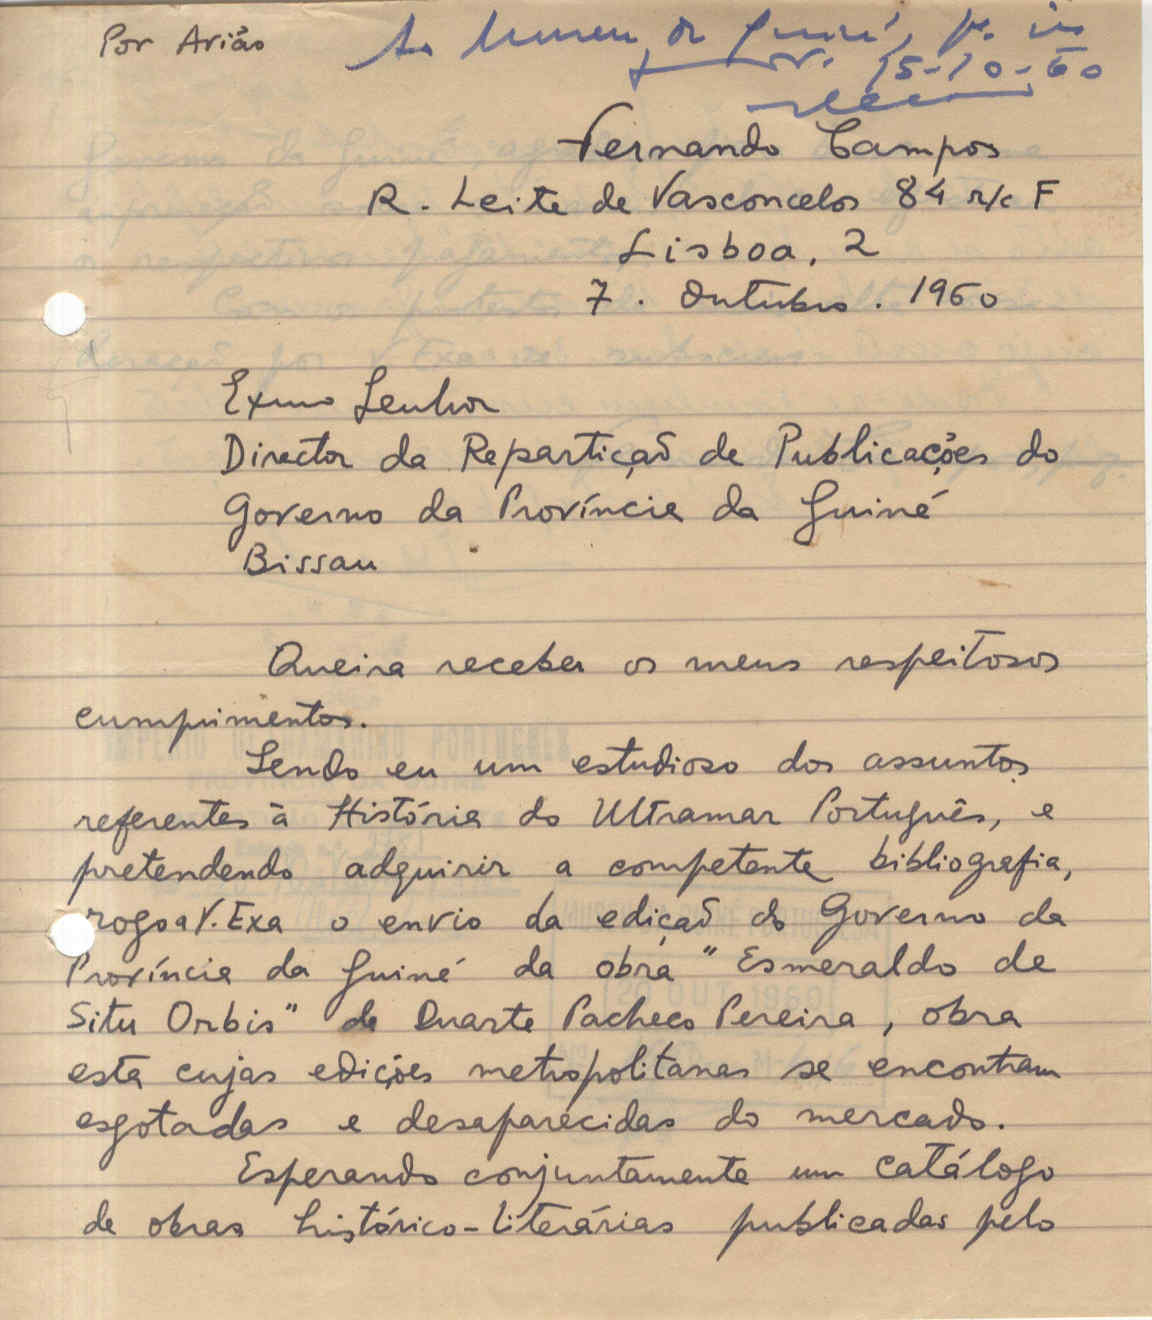 Por Avião
Ao Museu da Guiné,
15-10-60
Fernando Campos
R. Leite de Vasconcelos 84 r/c F
Lisboa, 2
7. Outubro. 1960
Exmo Senhor
Director da Repartição de Publicações do
Governo da Província da Guiné
Bissau
Queira receber os meus respeitosos
cumprimentos.
Sendo eu um estudioso dos assuntos
referentes à História do Ultramar Português, e
pretendendo adquirir a competente bibliografia,
rogo a V. Exa o envio da edição do Governo da
Província da Guiné da obra "Esmeraldo de
Situ Orbis" de Duarte Pacheco Pereira, obra
esta cujas edições metropolitanas se encontram
esgotadas e desaparecidas do mercado.
Esperando conjuntamente um catálogo
de obras histórico-literárias publicadas pelo